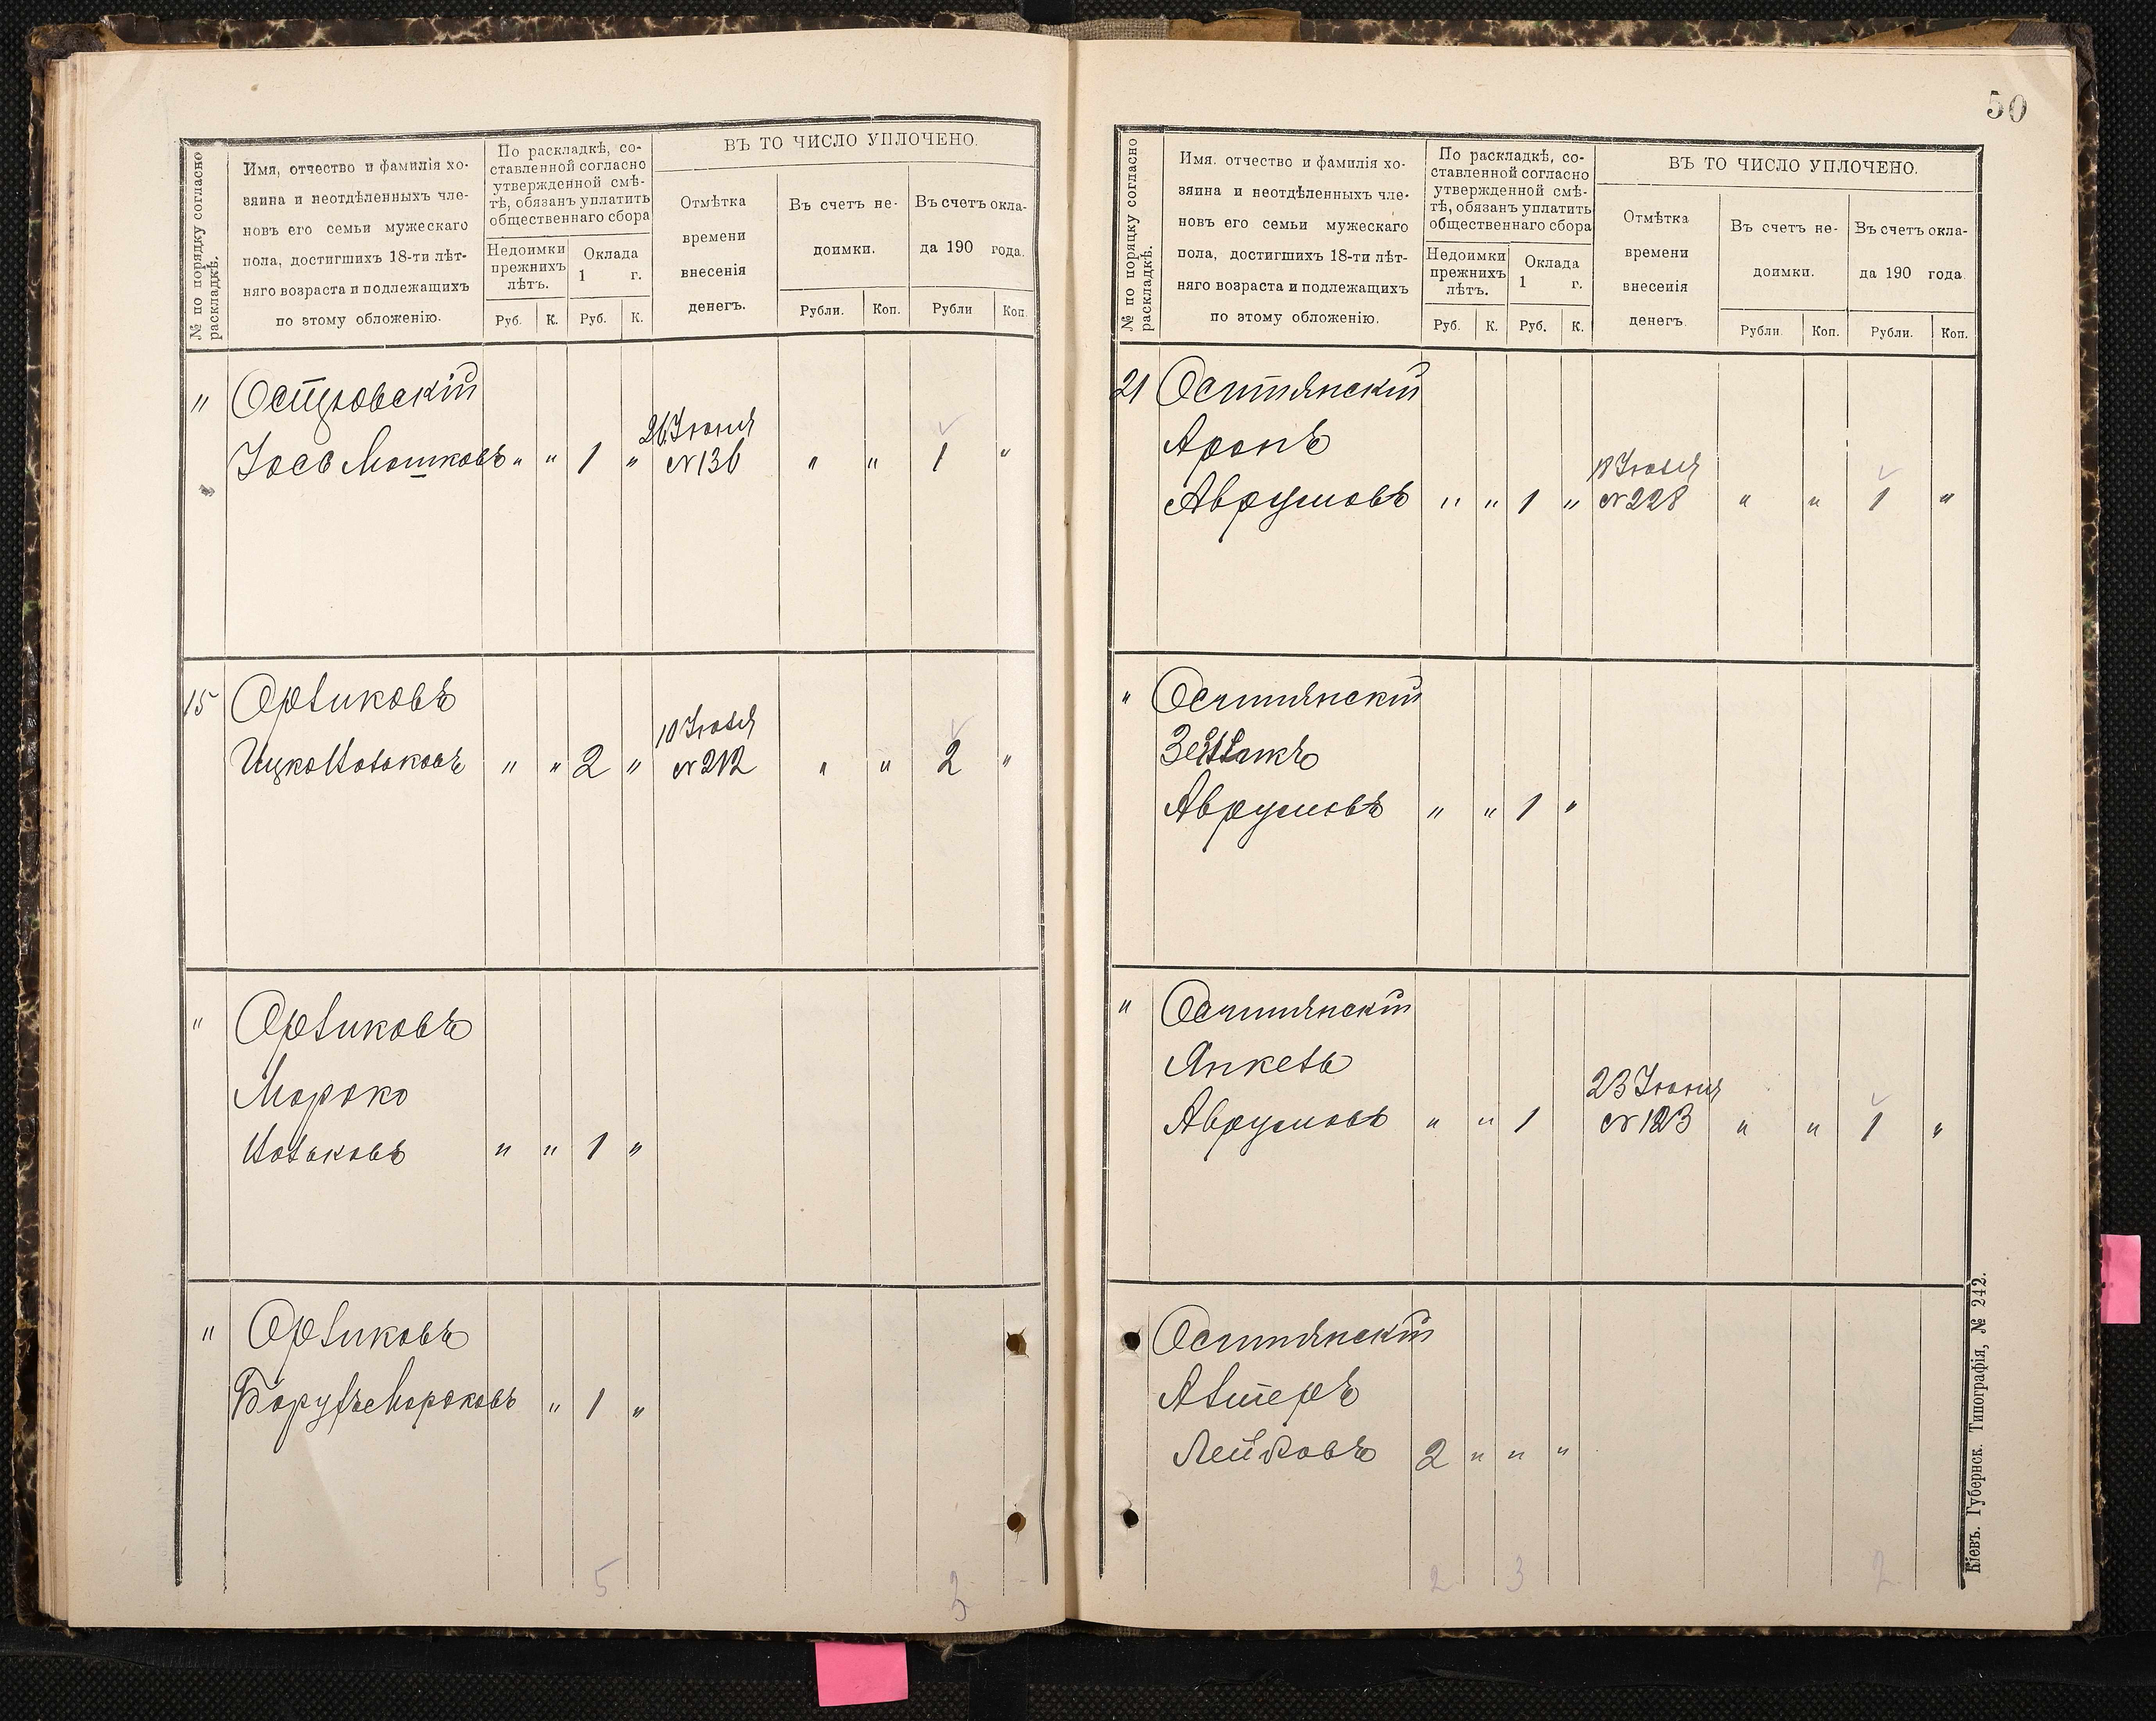 50
№ по порядку согласно раскладкѣ.
Имя, отчество и фамилія хо-
зяина и неотдѣленныхъ чле-
новъ его семьи мужескаго
пола, достигшихъ 18-ти лѣт-
няго возраста и подлежащихъ
по этому обложенію.
По раскладкѣ, со-
ставленной согласно
утвержденной смѣ-
тѣ, обязанъ уплатить
общественнаго сбора
Недоимки
прежнихъ
лѣтъ.
Оклада
1 г.
Руб. К. Руб. К.
ВЪ ТО ЧИСЛО УПЛОЧЕНО.
Отмѣтка
времени
внесенія
денегъ.
Въ счетъ не-
доимки.
Въ счетъ окла-
да 190 года.
Рубли. Коп. Рубли Коп.
" Островскій
26 Іюня
Іось Мошковъ " " 1 " №136 " " 1 "
15 Орликовъ
10 Іюля
Ицко " " 2 " №212 " " 2 "
" Орликовъ
Мороко
" " 1 "
" Орликовъ
Борухъ Мороковъ " 1 "
5 3
№ по порядку согласно раскладкѣ.
Имя. отчество и фамилія хо-
зяина и неотдѣленныхъ чле-
новъ его семьи мужескаго
пола, достигшихъ 18-ти лѣт-
няго возраста и подлежащихъ
по этому обложенію.
По раскладкѣ, со-
ставленной согласно
утвержденной смѣ-
тѣ, обязанъ уплатить
общественнаго сбора
Недоимки
прежнихъ
лѣтъ.
Оклада
1 г.
Руб. К. Руб. К.
ВЪ ТО ЧИСЛО УПЛОЧЕНО.
Отмѣтка
времени
внесенія
денегъ.
Въ счетъ не-
доимки.
Въ счетъ окла-
да 190 года.
Рубли Коп. Рубли. Коп.
21 Оситянскій
Аронъ
18 Іюля
Аврумовъ " " 1 " №228 " " 1 "
" Оситянскій
Аврумовъ " " 1 "
" Оситянскій
Янкель
23 Іюня
Аврумовъ " " 1 №123 " " 1 "
Оситянскій
Альтеръ
Лейбовъ 2 " " "
2 3 2
Кіевъ. Губернск. Типографія, № 242.